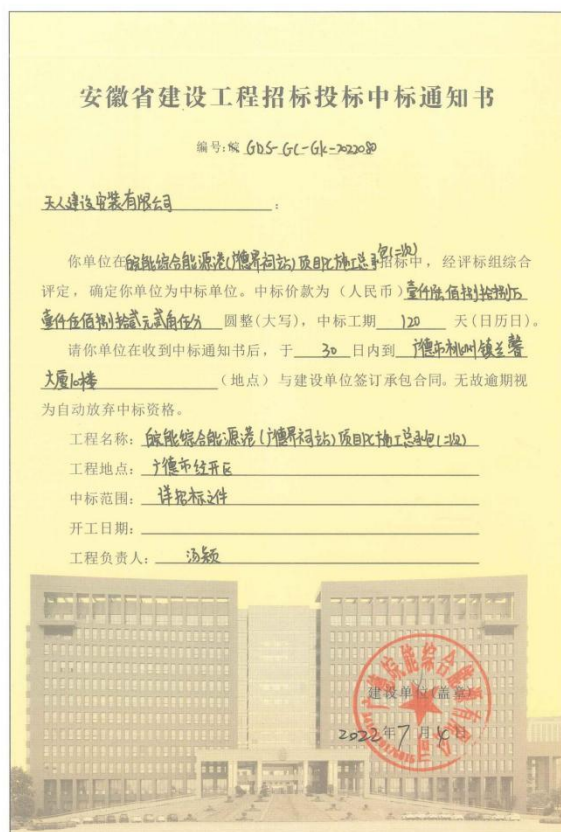 安徽省建设工程招标投标中标通知书
编号:皖 GDS-GC-GK-2022080
天人建设安装有限公司:
你单位在皖能综合能源港(广德界祠站)项目PC施工总承包(二次)招标中,经评标组综合
评定,确定你单位为中标单位。中标价款为(人民币)壹仟陆佰捌拾捌万
壹仟伍佰捌拾贰元贰角伍分 圆整(大写),中标工期 120 天(日历日)。
请你单位在收到中标通知书后,于 30 日内到 广德市桃州镇兰馨
大厦10楼 (地点)与建设单位签订承包合同。无故逾期视
为自动放弃中标资格。
工程名称:皖能综合能源港(广德界祠站)项目PC施工总承包(二次)
工程地点:广德市经开区
中标范围:详招标文件
开工日期:
工程负责人:汤颖
广德皖能综合能源有限公司
建设单位(盖章)
2022年7月4日